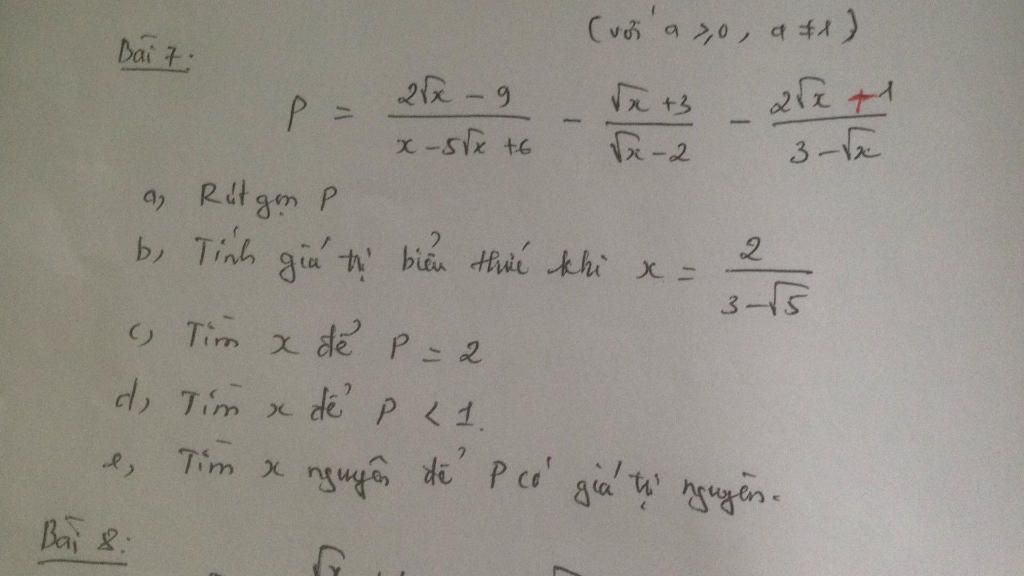 (với a ≥ 0, a ≠ 1)
Bài 7:
P = \frac{2√x - 9}{x - 5√x + 6} - \frac{√x + 3}{√x - 2} - \frac{2√x + 1}{3 - √x}
a, Rút gọn P
b, Tính giá trị biểu thức khi x = \frac{2}{3 - √5}
c, Tìm x để P = 2
d, Tìm x để P < 1.
e, Tìm x nguyên để P có giá trị nguyên.
Bài 8: